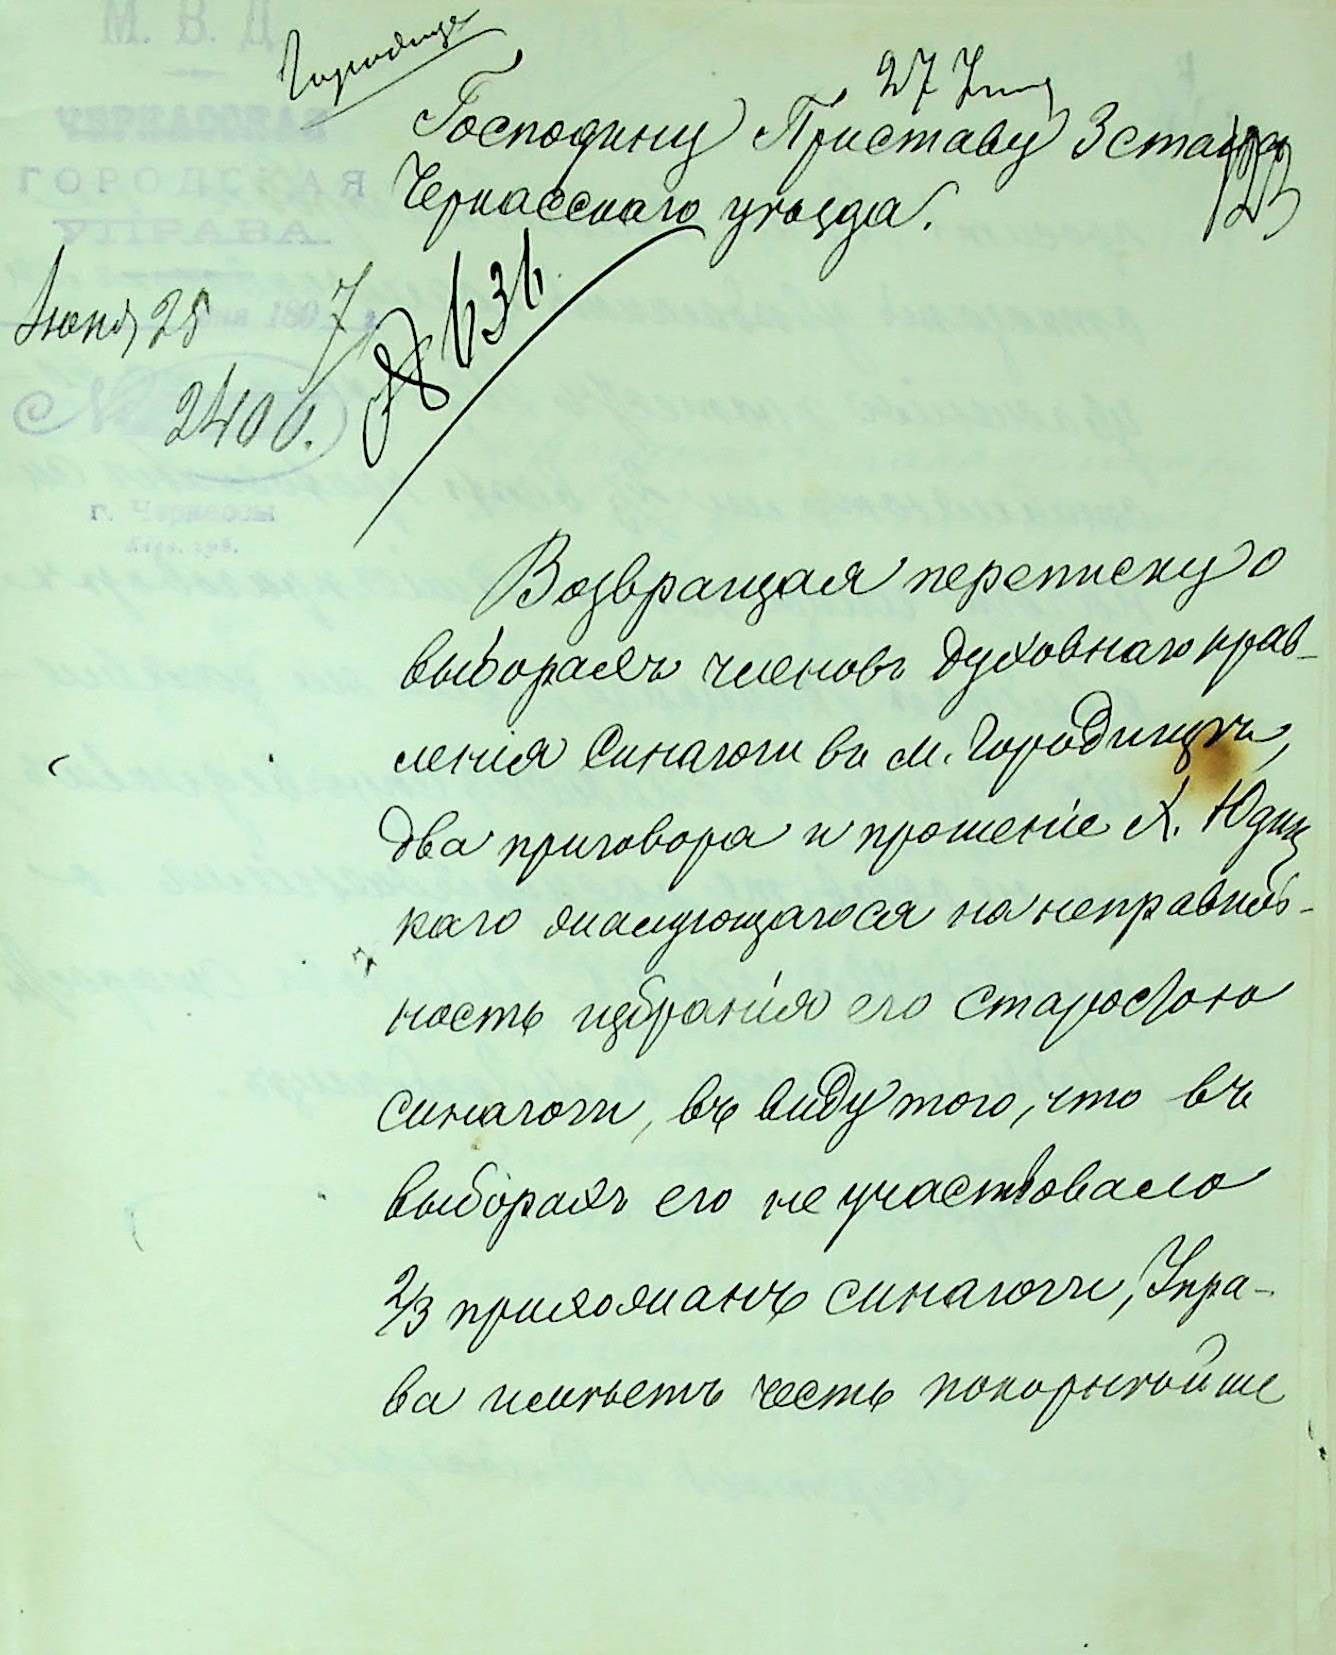 М. В. Д.
ЧЕРКАССКАЯ
ГОРОДСКАЯ
УПРАВА
Июня 25
1897 г.
№ 2406.
г. Черкассы
Кіев. губ.
Городище
27 Іюня
Господину Приставу 3 стана
Черкасскаго уѣзда.
Возвращая переписку о
выборахъ членовъ духовнаго прав-
ленія Синагоги въ м. Городищѣ,
два приговора и прошеніе Х. Юдиц
каго жалующагося на неправиль-
ность избранія его старостою
синагоги, въ виду того, что въ
выборахъ его не участвовало
2/3 прихожанъ синагоги, Упра-
ва имѣетъ честь покорнѣйше